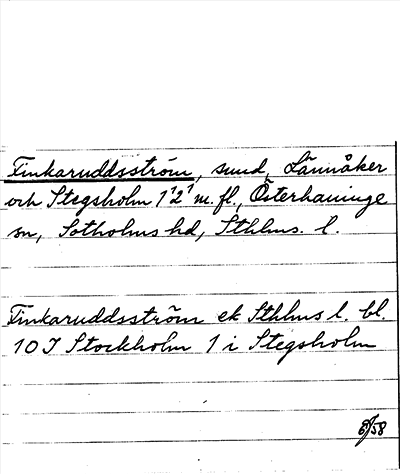 Finkaruddsström, sund, Lännåker
och Stegsholm 1¹2¹ m. fl., Österhaninge
sn, Sotholms hd, Sthlms. l.
Finkaruddsström ek Sthlms l. bl.
10 I Stockholm 1 i Stegsholm
8/58